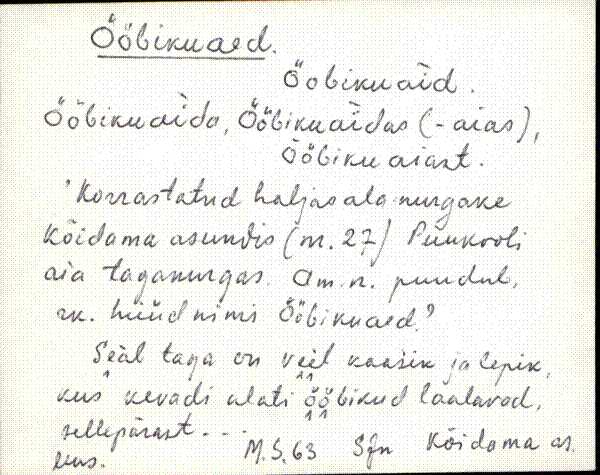 Ööbikuaed.
Ööbikuaid.
Ööbikuaida, Ööbikuaidas (-aias),
Ööbikuaiast.
'Korrastatud haljasala nurgake
Kõidama asundis (nr. 27) Puukooli
aia taganurgas. Am. n. puudub,
rk. hüüdnimi Ööbikuaed.'
Seäl taga on veel kaasik ja lepik,
kus kevadi alati ööbikud laalavad,
sellepärast...
M.S. 63 Sjn Kõidama as.